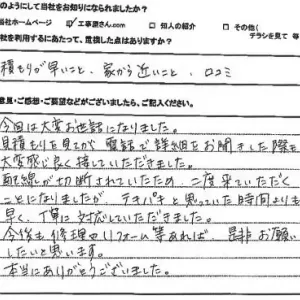 のようにして当社をお知りになられましたか？
社ホームページ ☑工事源さん.com □知人の紹介 □その他(
チラシを見て 毎
社を利用するにあたって、重視した点はありますか？
積もりが早いこと、家から近いこと、口コミ
意見・ご感想・ご要望などがございましたら、ご記入ください。
今回は大変お世話になりました。
見積もりを見てから電話で詳細をお聞きした際も
大変感じ良く接していただきました。
配線が切断されていたため、二度来ていただく
ことになりましたが、テキパキと思っていた時間よりも
早く、丁寧に対応していただきました。
今後も修理やリフォーム等あれば、是非お願い
したいと思います。
本当にありがとうございました。